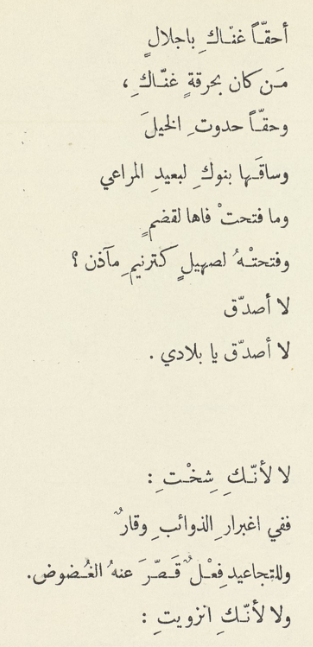 أحقّاً غنّاكِ باجلالٍ
مَن كان بحرقةٍ غنّاكِ ،
وحقّاً حدوتِ الخيلَ
وساقَها بنوكِ لبعيدِ المراعي
وما فتحتْ فاها لقضمٍ
وفتحتْهُ لصهيلٍ كترنيمِ مآذن ؟
لا أصدّق
لا أصدّق يا بلادي .
لا لأنّكِ شِخْتِ :
ففي اغبرارِ الذوائبِ وقارٌ
وللتجاعيد فِعْلٌ قَصّرَ عنهُ الغُضوض .
ولا لأنّكِ انزويتِ :